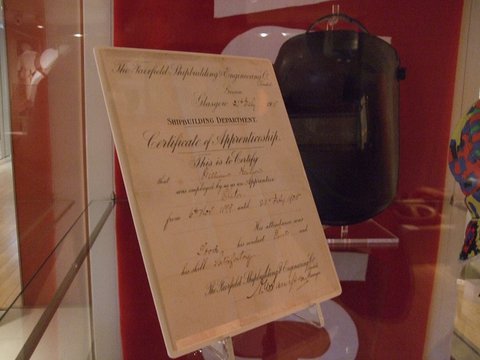 The Fairfield Shipbuilding & Engineering Co.
Limited
Govan
Glasgow
SHIPBUILDING DEPARTMENT.
Certificate of Apprenticeship.
This is to Certify
that William
was employed by us as an Apprentice
from until
His attendance was
Good, his conduct Good and
his skill satisfactory
The Fairfield Shipbuilding & Engineering Co.
Limited
Manager